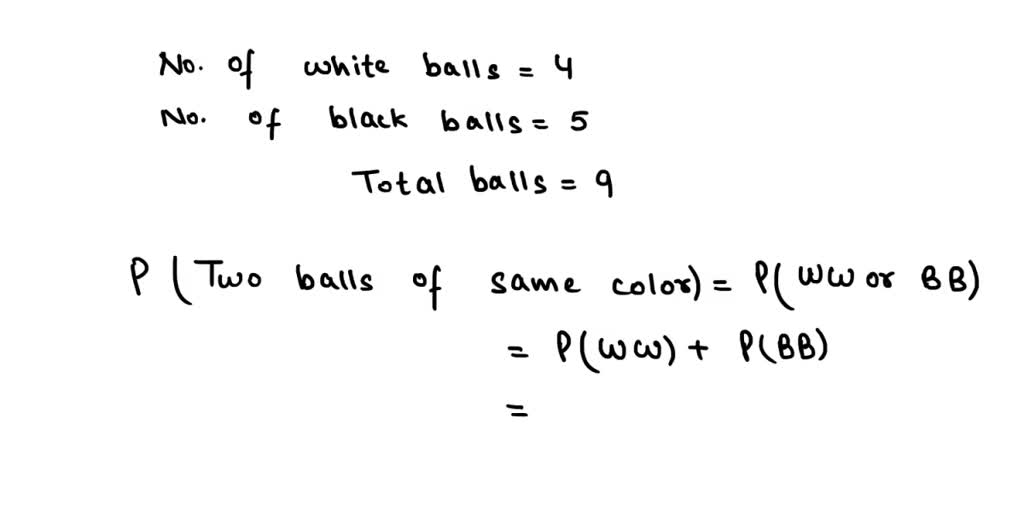 No. of white balls = 4
No. of black balls = 5
Total balls = 9
P (Two balls of same color) = P(WW or BB)
= P(WW) + P(BB)
=